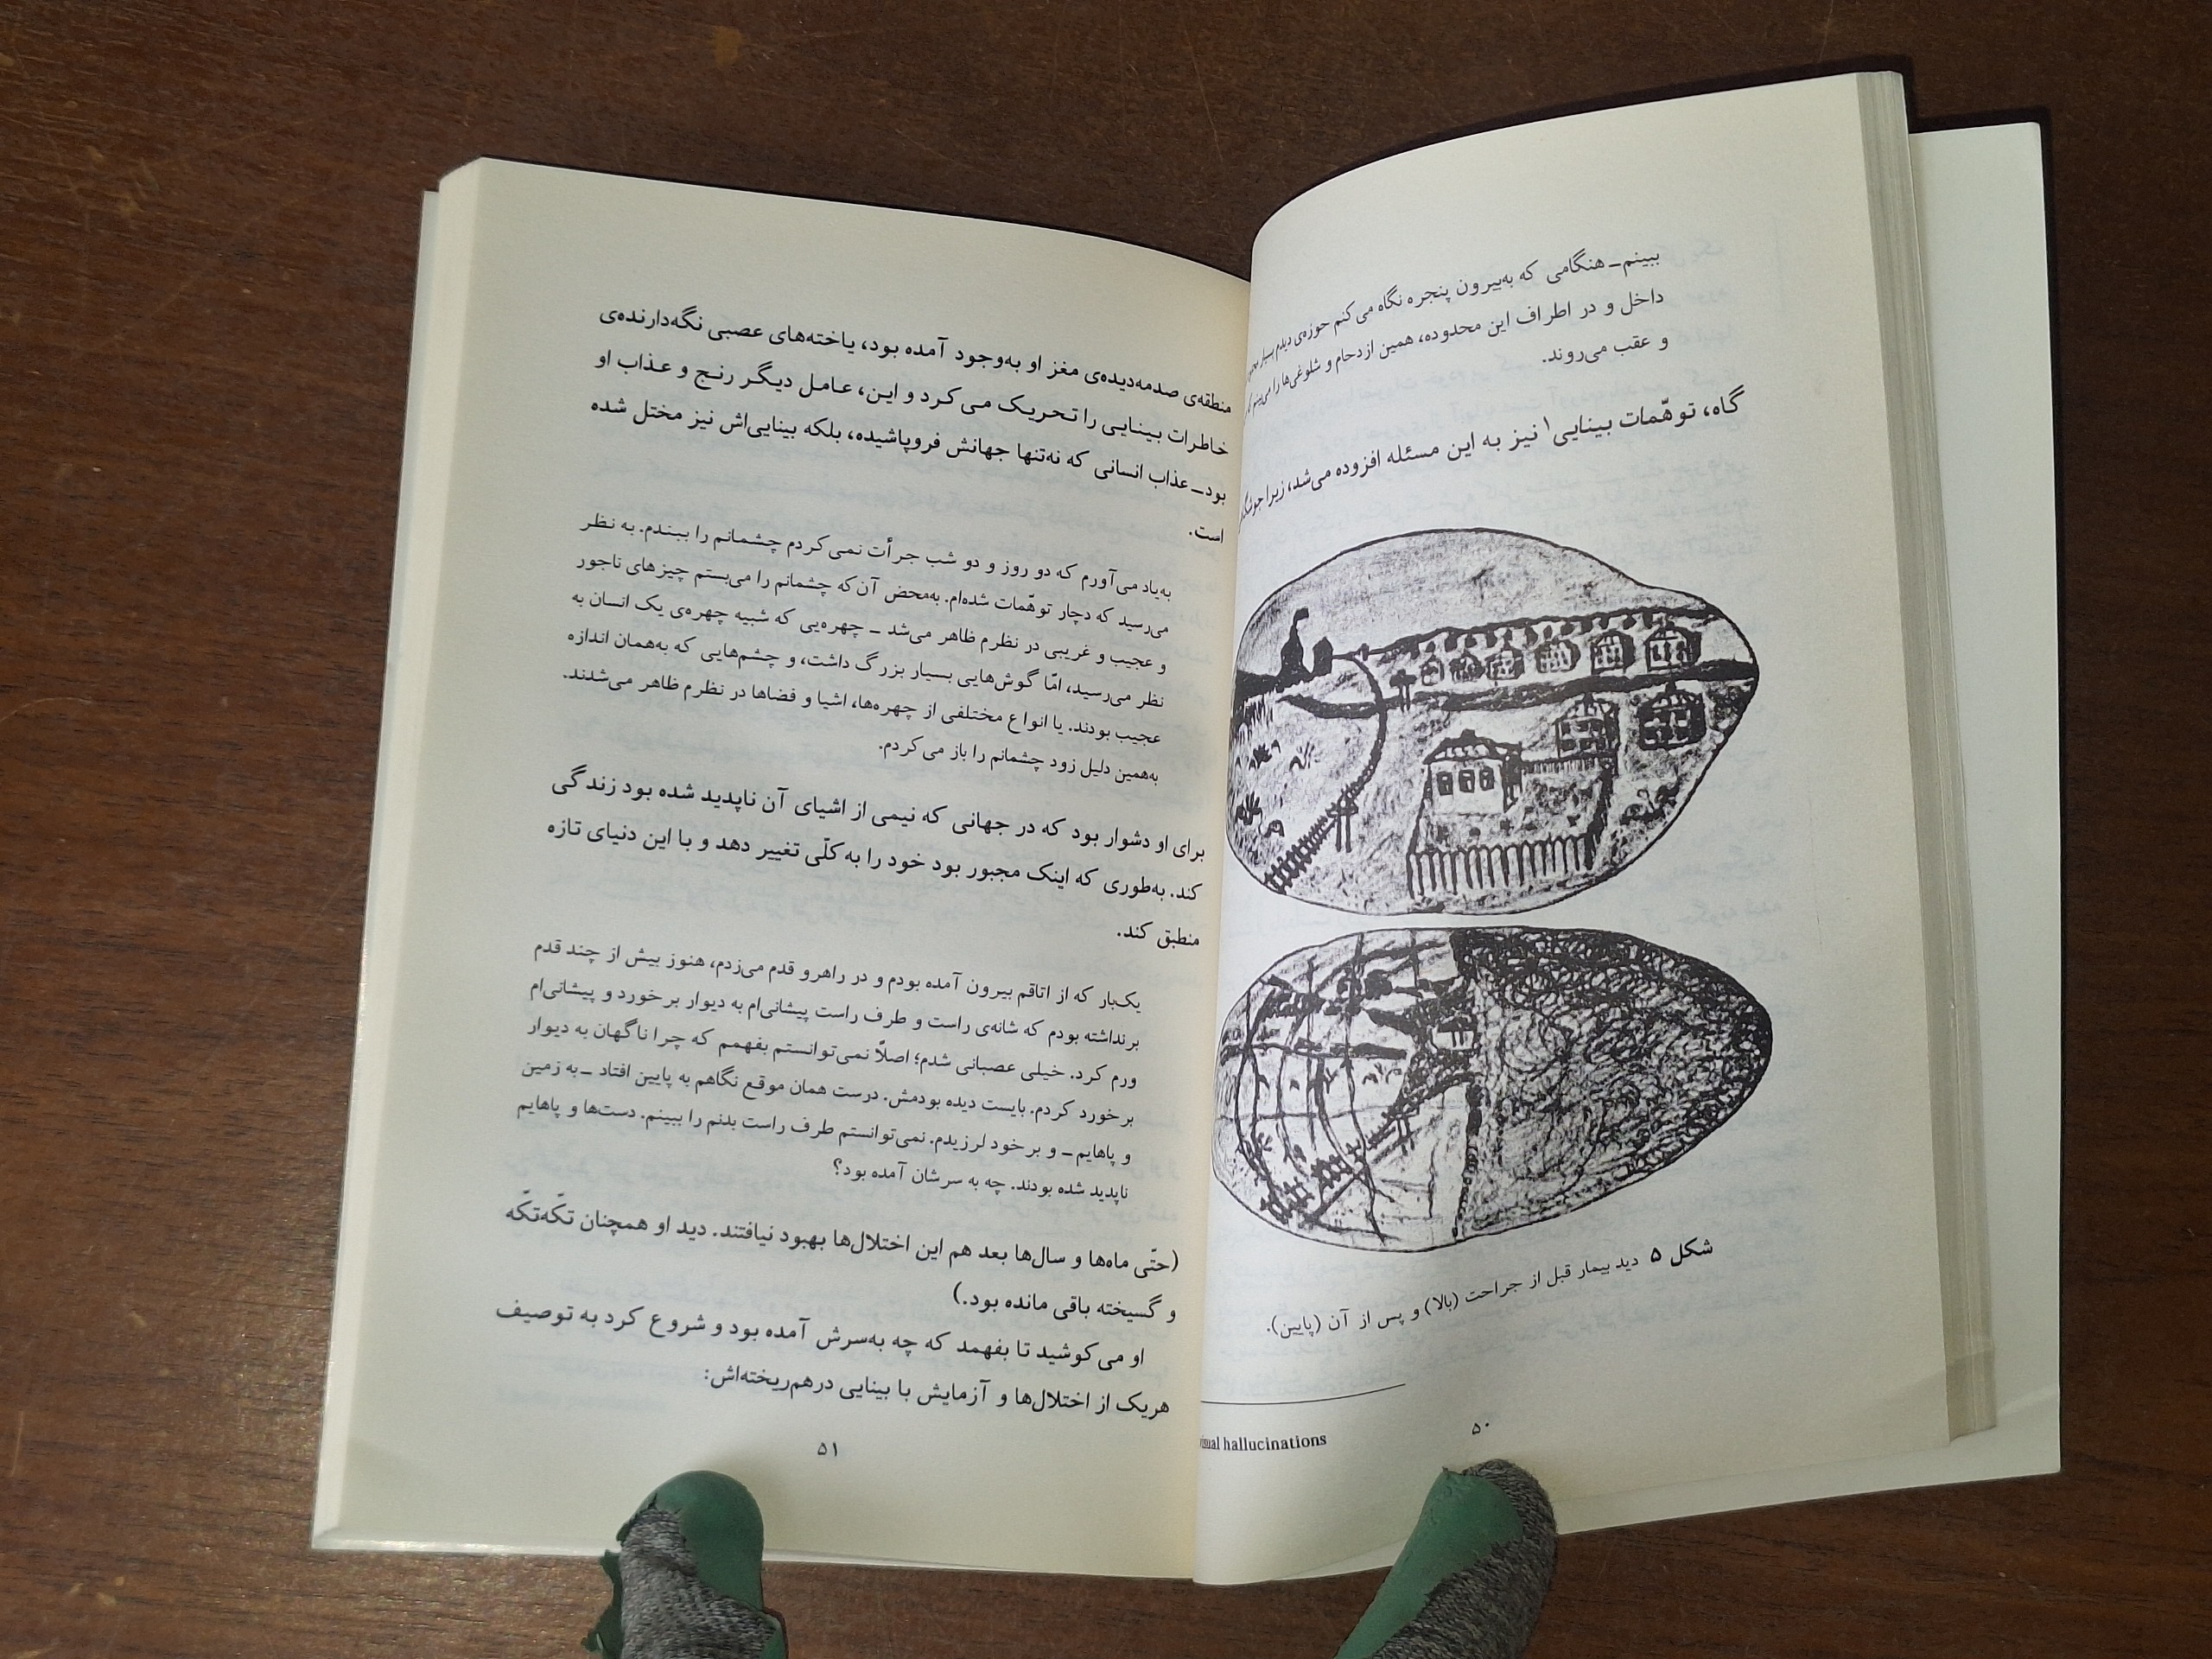 ببینم ـ هنگامی که به‌بیرون پنجره نگاه می‌کنم حوزه‌ی دیدم بسیار
داخل و در اطراف این محدوده، همین ازدحام و شلوغی‌ها را می‌بینم
و عقب می‌روند.
گاه، توهّمات بینایی۱ نیز به این مسئله افزوده می‌شد، زیرا
شکل ۵ دید بیمار قبل از جراحت (بالا) و پس از آن (پایین).
visual hallucinations
۵۰
منطقه‌ی صدمه‌دیده‌ی مغز او به‌وجود آمده بود، یاخته‌های عصبی نگه‌دارنده‌ی
خاطرات بینایی را تحریک می‌کرد و این، عامل دیگر رنج و عذاب او
بود ـ عذاب انسانی که نه‌تنها جهانش فروپاشیده، بلکه بینایی‌اش نیز مختل شده
است.
به‌یاد می‌آورم که دو روز و دو شب جرأت نمی‌کردم چشمانم را ببندم. به نظر
می‌رسید که دچار توهّمات شده‌ام. به‌محض آن‌که چشمانم را می‌بستم چیزهای ناجور
و عجیب و غریبی در نظرم ظاهر می‌شد ـ چهره‌یی که شبیه چهره‌ی یک انسان به
نظر می‌رسید، امّا گوش‌هایی بسیار بزرگ داشت، و چشم‌هایی که به‌همان اندازه
عجیب بودند. یا انواع مختلفی از چهره‌ها، اشیا و فضاها در نظرم ظاهر می‌شدند.
به‌همین دلیل زود چشمانم را باز می‌کردم.
برای او دشوار بود که در جهانی که نیمی از اشیای آن ناپدید شده بود زندگی
کند. به‌طوری که اینک مجبور بود خود را به‌کلّی تغییر دهد و با این دنیای تازه
منطبق کند.
یک‌بار که از اتاقم بیرون آمده بودم و در راهرو قدم می‌زدم، هنوز بیش از چند قدم
برنداشته بودم که شانه‌ی راست و طرف راست پیشانی‌ام به دیوار برخورد و پیشانی‌ام
ورم کرد. خیلی عصبانی شدم؛ اصلاً نمی‌توانستم بفهمم که چرا ناگهان به دیوار
برخورد کردم. بایست دیده بودمش. درست همان موقع نگاهم به پایین افتاد ـ به زمین
و پاهایم ـ و برخود لرزیدم. نمی‌توانستم طرف راست بدنم را ببینم. دست‌ها و پاهایم
ناپدید شده بودند. چه به سرشان آمده بود؟
(حتّی ماه‌ها و سال‌ها بعد هم این اختلال‌ها بهبود نیافتند. دید او همچنان تکّه‌تکّه
و گسیخته باقی مانده بود.)
او می‌کوشید تا بفهمد که چه به‌سرش آمده بود و شروع کرد به توصیف
هریک از اختلال‌ها و آزمایش با بینایی درهم‌ریخته‌اش:
۵۱